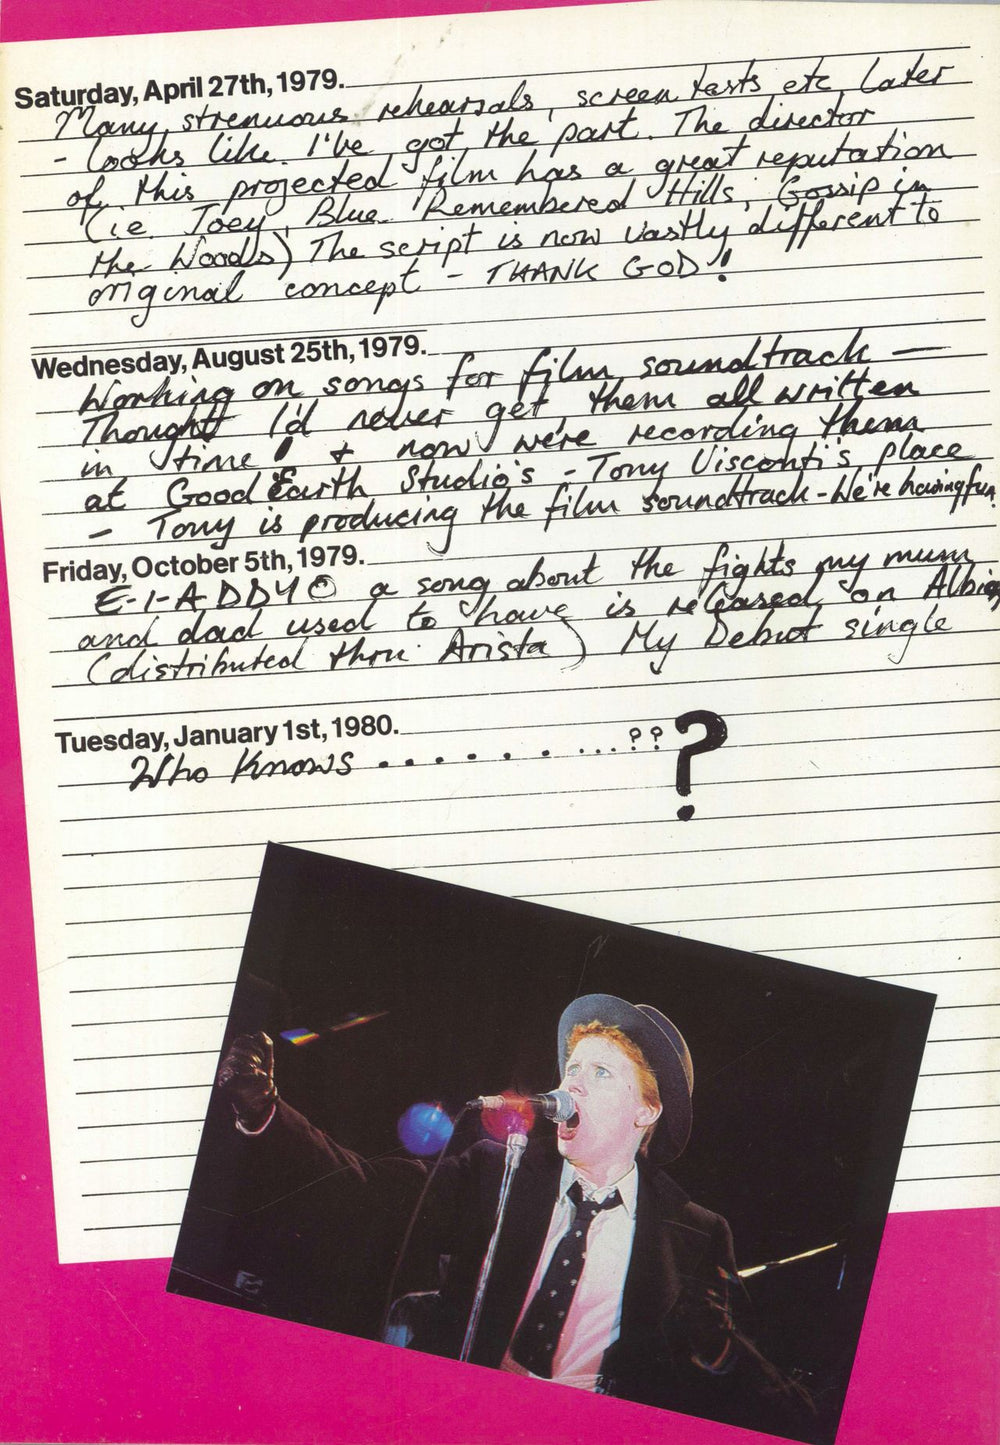 Saturday, April 27th, 1979.
Many strenuous rehearsals, screen tests etc. Later
- Looks like I've got the part. The director
of this projected film has a great reputation
(ie Joey, Blue Remembered Hills, Gossip in
the Woods) The script is now vastly different to
original concept - THANK GOD!
Wednesday, August 25th, 1979.
Working on songs for film soundtrack —
Thought I'd never get them all written
in time! + now we're recording them
at Good Earth Studio's - Tony Visconti's place
- Tony is producing the film soundtrack - We're having fun.
Friday, October 5th, 1979.
E-I-ADDYO a song about the fights my mum
and dad used to have is released on Albion
(distributed thru Arista) My Debut single
Tuesday, January 1st, 1980.
Who Knows . . . . . . . . . ? ? ?